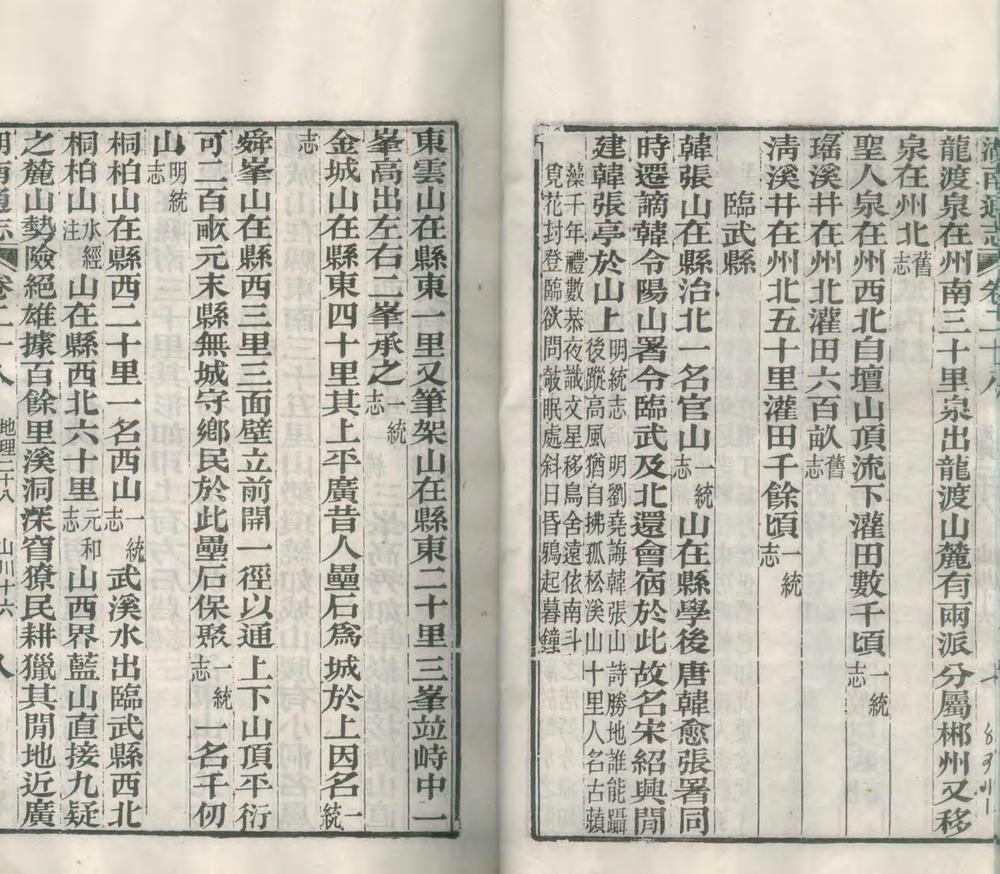 湖南通志 卷二十八
龍渡泉在州南三十里泉出龍渡山麓有兩派分屬郴州又移
泉在州北舊志
聖人泉在州西北自壇山頂流下灌田數千頃一統志
瑤溪井在州北灌田六百畝舊志
清溪井在州北五十里灌田千餘頃一統志
臨武縣
韓張山在縣治北一名官山一統志山在縣學後唐韓愈張署同
時遷謫韓令陽山署令臨武及北還會宿於此故名宋紹興閒
建韓張亭於山上明統志 明劉堯誨韓張山詩勝地誰能躡
後蹤高風猶自拂孤松溪山十里人名古蘋
藻千年禮數恭夜識文星移鳥舍遠依南斗
覓花封登臨欲問攲眠處斜日昏鴉起暮鐘
東雲山在縣東一里又筆架山在縣東二十里三峯竝峙中一
峯高出左右二峯承之一統志
金城山在縣東四十里其上平廣昔人壘石爲城於上因名一統
志
舜峯山在縣西三里三面壁立前開一徑以通上下山頂平衍
可二百畝元末縣無城守鄉民於此壘石保聚一統志一名千仞
山明統志
桐柏山在縣西二十里一名西山一統志武溪水出臨武縣西北
桐柏山水經注山在縣西北六十里元和志山西界藍山直接九疑
之麓山勢險絕雄據百餘里溪洞深窅獠民耕獵其閒地近廣
湖南通志 卷二十八 地理二十八 山川十六 八